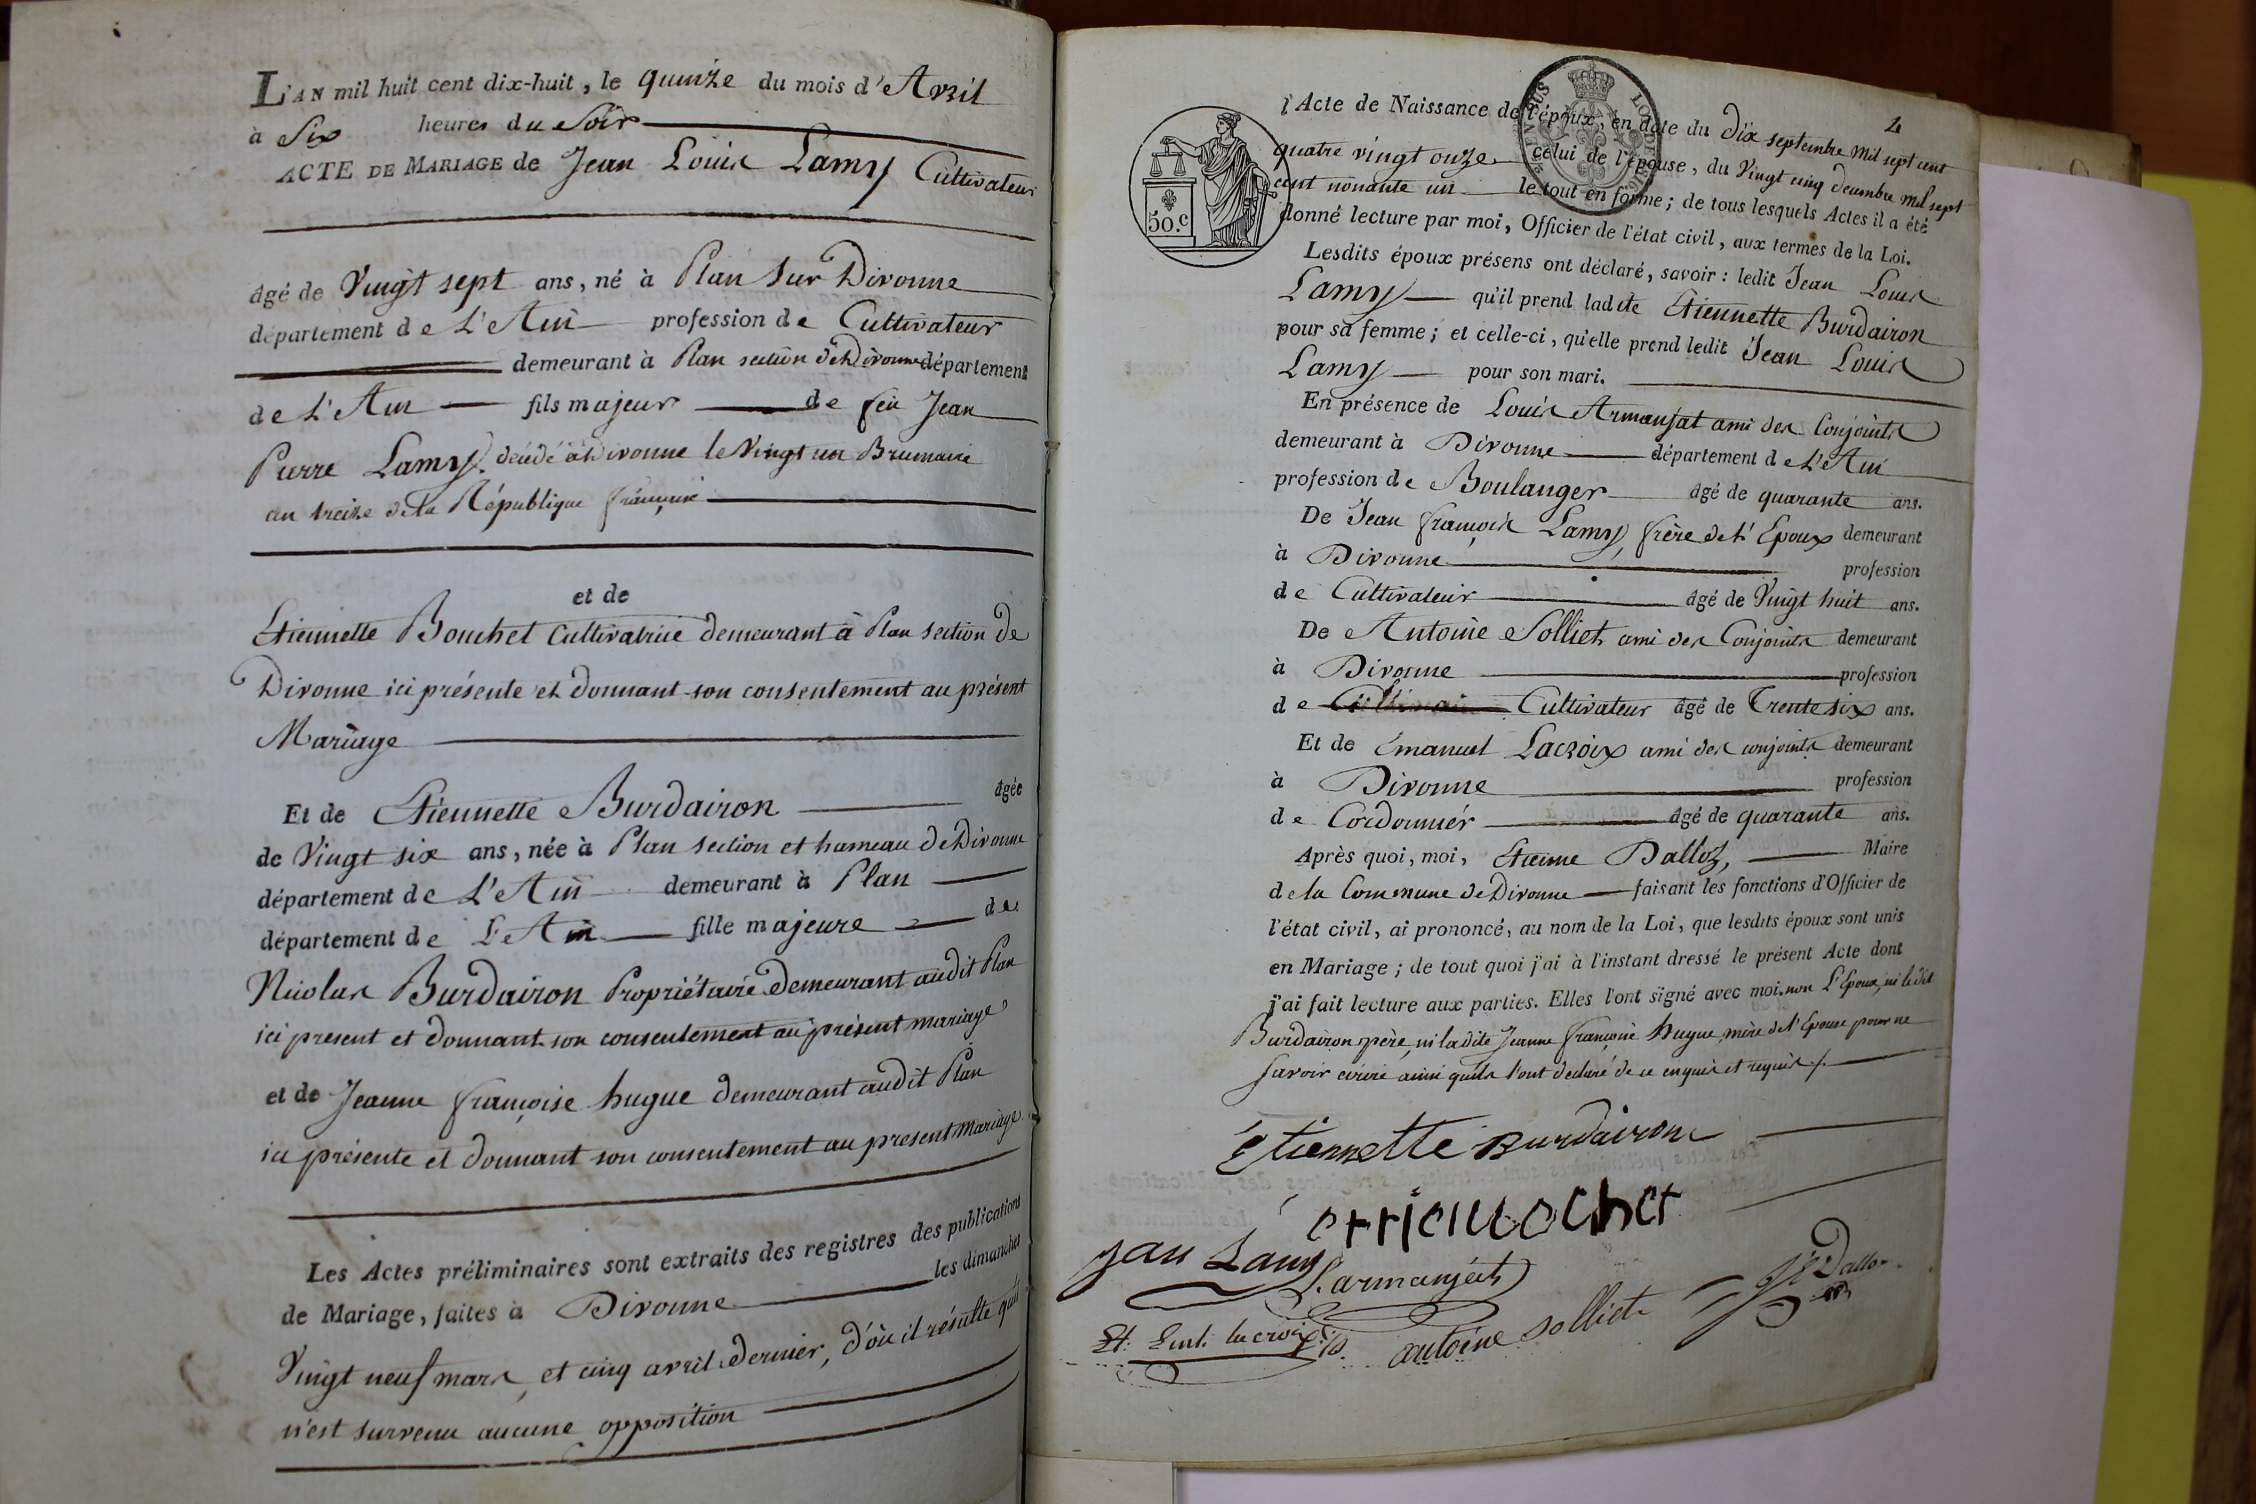 L'AN mil huit cent dix-huit, le quinze du mois d'Avril
à Six heures du Soir
ACTE DE MARIAGE de Jean Louis Lamy Cultivateur
âgé de Vingt sept ans, né à Plan Sur Divonne
département de L'Ain profession de Cultivateur
demeurant à Plan section de Divonne département
de L'Ain fils majeur de feu Jean
Pierre Lamy, décédé à Divonne le Vingt un Brumaire
an treize de la République française
et de
Etiennette Bouchet Cultivatrice demeurant à Plan section de
Divonne ici présente et donnant son consentement au présent
Mariage
Et de Etiennette Burdairon âgée
de Vingt six ans, née à Plan section et hameau de Divonne
département de L'Ain demeurant à Plan
département de L'Ain fille majeure de
Nicolas Burdairon Propriétaire demeurant audit Plan
ici present et donnant son consentement au présent mariage
et de Jeanne françoise hugue demeurant audit Plan
ici présente et donnant son consentement au present mariage
Les Actes préliminaires sont extraits des registres des publications
de Mariage, faites à Divonne les dimanches
Vingt neuf mars, et cinq avril dernier, d'où il résulte qu'il
n'est survenu aucune opposition
4
l'Acte de Naissance de l'époux, en date du dix septembre mil sept cent
quatre vingt onze celui de l'épouse, du Vingt cinq decembre mil sept
cent nonante un le tout en forme; de tous lesquels Actes il a été
50.c
donné lecture par moi, Officier de l'état civil, aux termes de la Loi.
Lesdits époux présens ont déclaré, savoir: ledit Jean Louis
Lamy qu'il prend ladite Etiennette Burdairon
pour sa femme; et celle-ci, qu'elle prend ledit Jean Louis
Lamy pour son mari.
En présence de Louis Armanjat ami des Conjoints
demeurant à Divonne département de L'Ain
profession de Boulanger âgé de quarante ans.
De Jean françois Lamy, frère de l'Epoux demeurant
à Divonne profession
de Cultivateur âgé de Vingt huit ans.
De Antoine Solliet, ami des Conjoints demeurant
à Divonne profession
de Cultivateur âgé de Trente six ans.
Et de Emanuel Lacroix ami des conjoints demeurant
à Divonne profession
de Cordonnier âgé de quarante ans.
Après quoi, moi, Etienne Dalloz, Maire
de la Commune de Divonne faisant les fonctions d'Officier de
l'état civil, ai prononcé, au nom de la Loi, que lesdits époux sont unis
en Mariage; de tout quoi j'ai à l'instant dressé le présent Acte dont
j'ai fait lecture aux parties. Elles l'ont signé avec moi, non L'Epoux, ni le dit
Burdairon père, ni la dite Jeanne françoise hugue, mère de l'Epouse pour ne
savoir ecrire ainsi quils l'ont declaré de ce enquis et requis
Etiennette Burdairon
Jean Lamy
L. armanjat
Et. Dalloz
lacroix
antoine Solliet